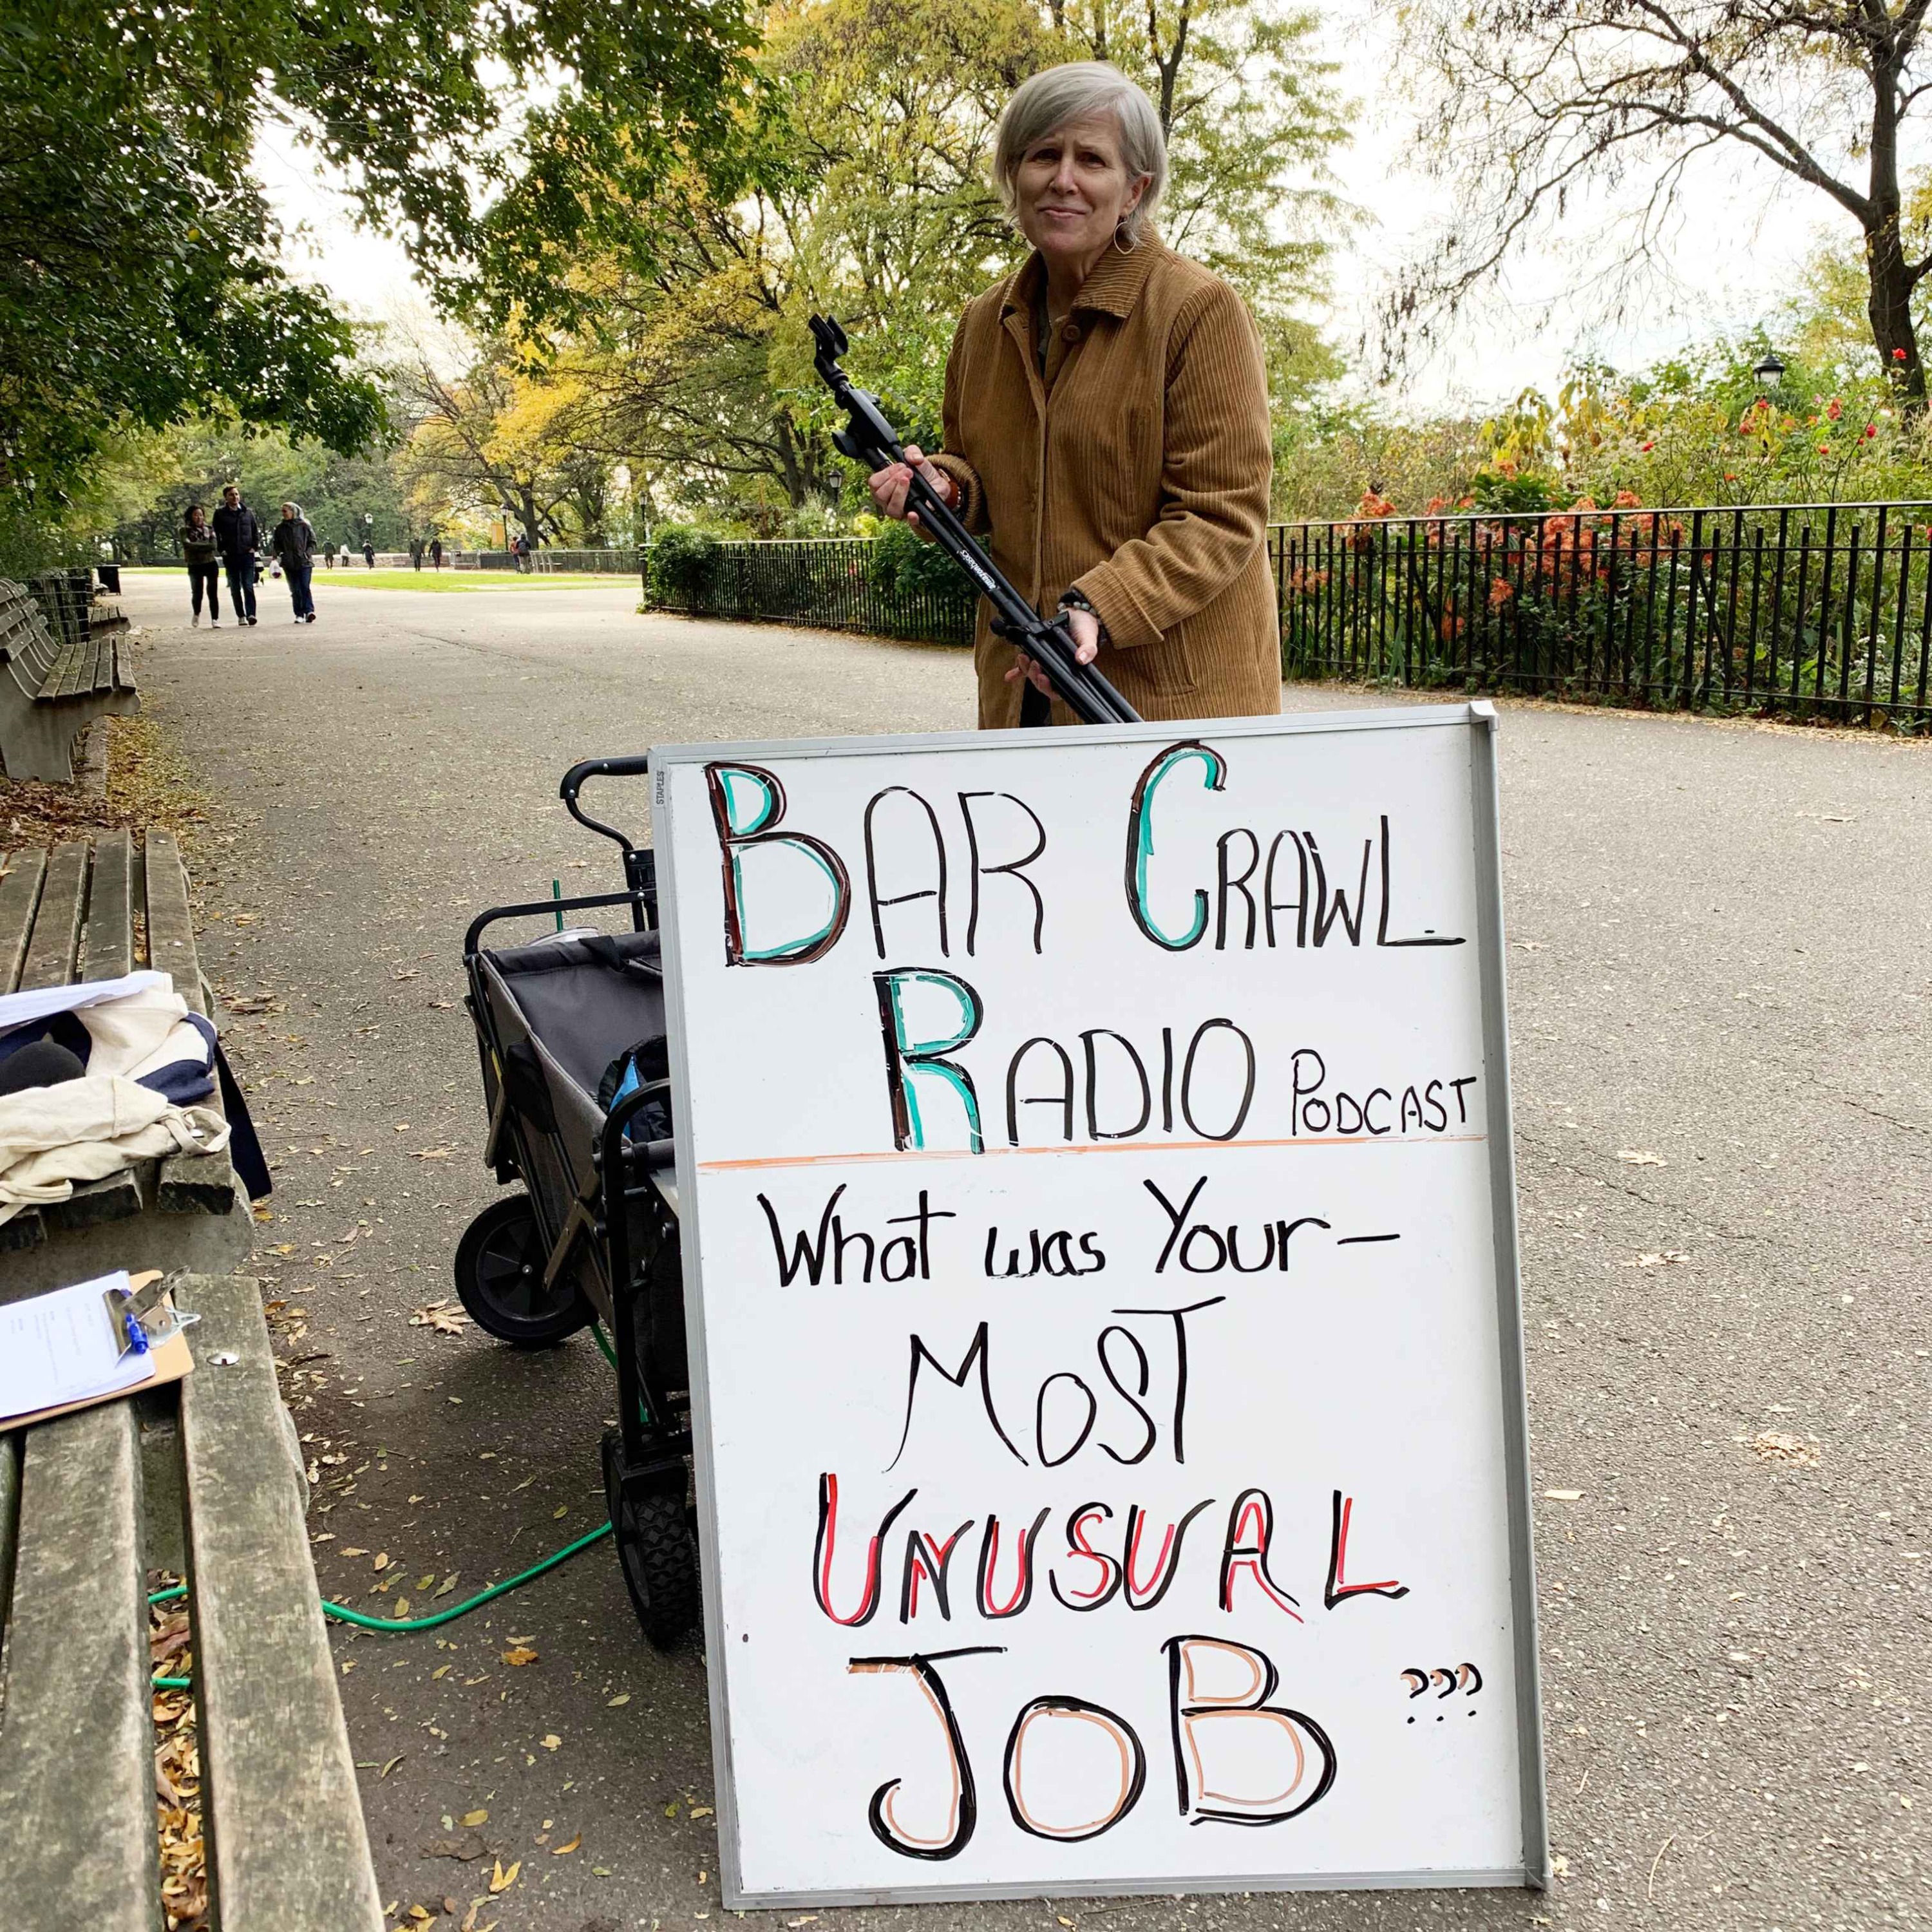 STAPLES
amazonbasics
BAR CRAWL
RADIO PODCAST
What was Your—
MOST
UNUSUAL
JOB ???